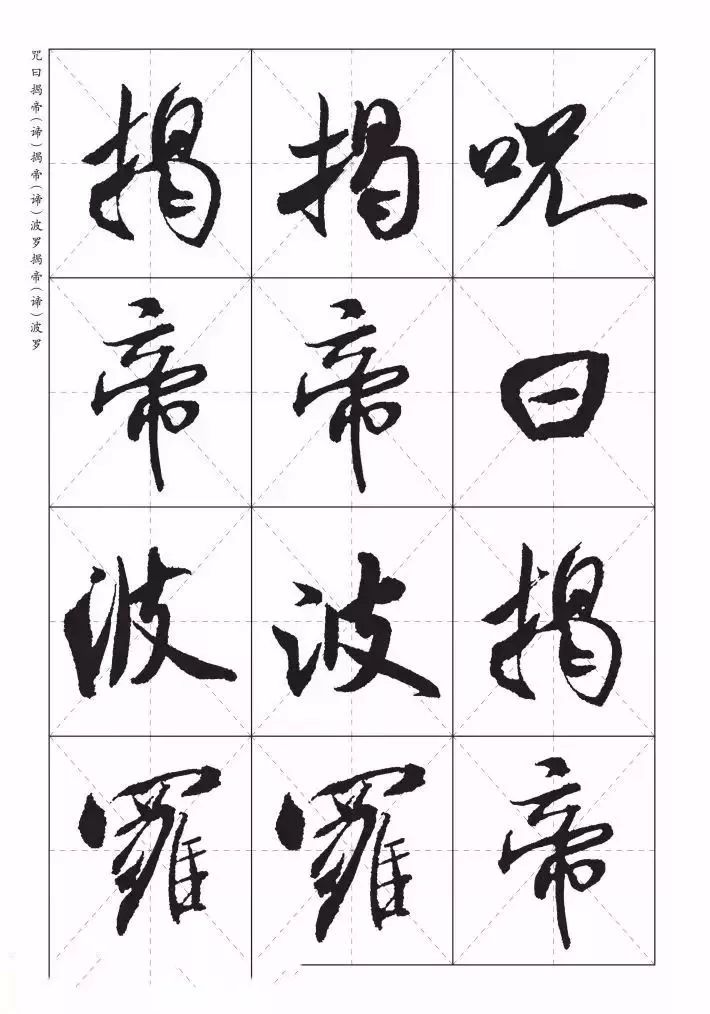 咒曰揭帝(谛)揭帝(谛)波罗揭帝(谛)波罗
呪曰揭帝
揭帝波羅
揭帝波羅